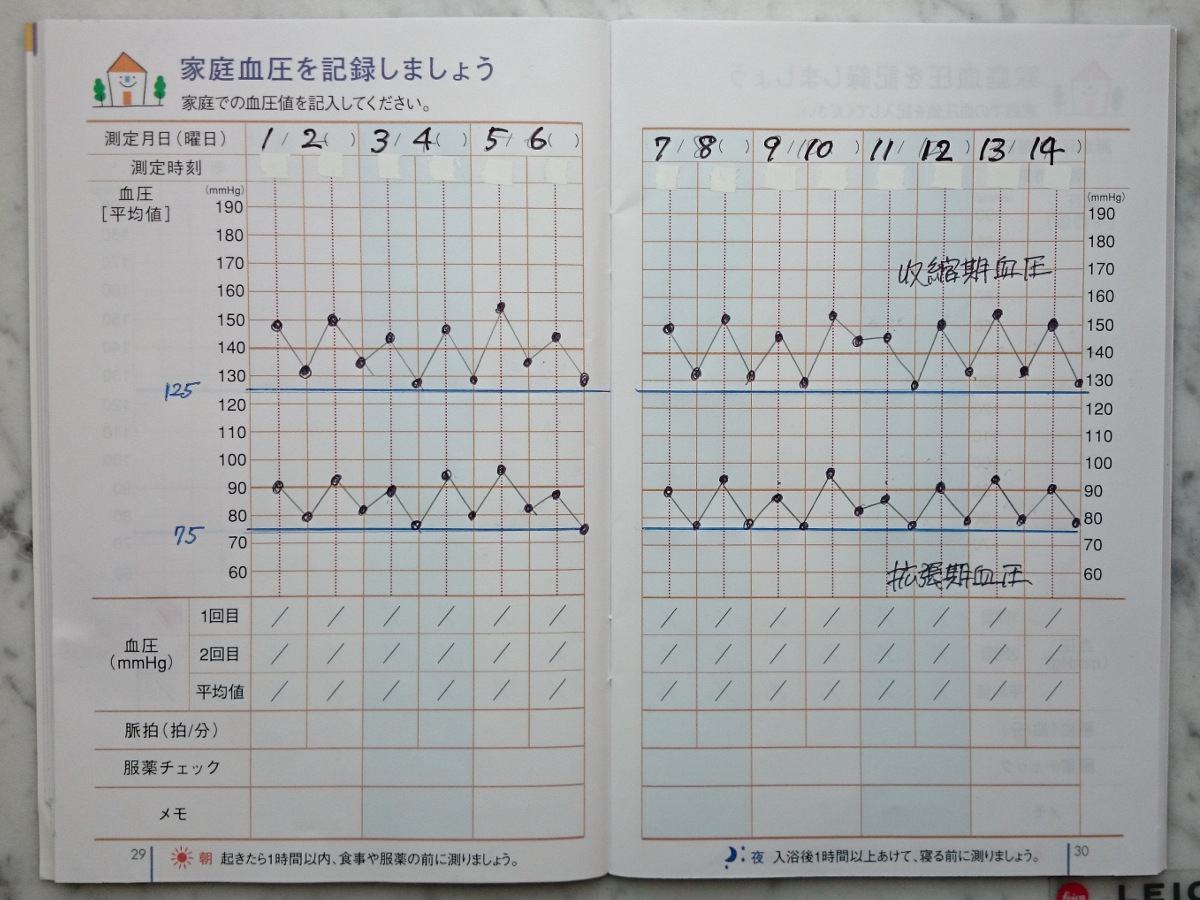 家庭血圧を記録しましょう
家庭での血圧値を記入してください。
測定月日(曜日) 1 / 2 ( ) 3 / 4 ( ) 5 / 6 ( )
測定時刻
血圧
[平均値]
(mmHg)
190
180
170
160
150
140
130
125
120
110
100
90
80
75
70
60
血圧
(mmHg)
1回目 / / / / / /
2回目 / / / / / /
平均値 / / / / / /
脈拍(拍/分)
服薬チェック
メモ
29
朝 起きたら1時間以内、食事や服薬の前に測りましょう。
7 / 8 ( ) 9 / 10 ) 11 / 12 ) 13 / 14 )
(mmHg)
190
180
収縮期血圧
170
160
150
140
130
120
110
100
90
80
70
拡張期血圧
60
/ / / / / / / /
/ / / / / / / /
/ / / / / / / /
夜 入浴後1時間以上あけて、寝る前に測りましょう。
30
LEIC